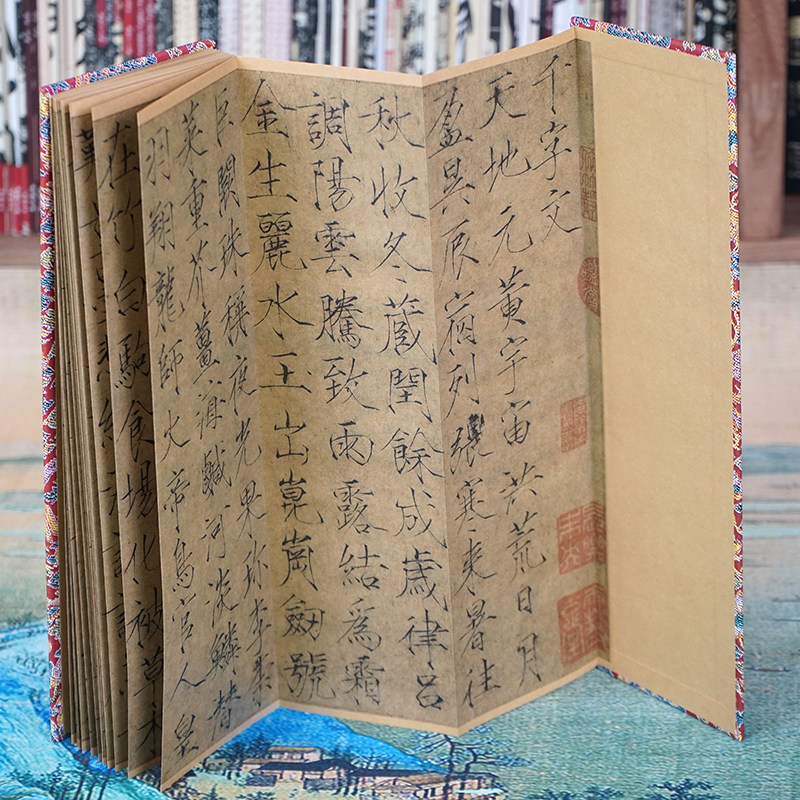 千字文
天地元黃宇宙洪荒日月
盈昃辰宿列張寒来暑往
秋收冬蔵閏餘成歲律呂
調陽雲騰致雨露結爲霜
金生麗水玉出崑崗劔號
巨闕珠稱夜光果珎李柰
菜重芥薑海鹹河淡鱗潜
羽翔龍師火帝鳥官人皇
在竹白駒食場化被草木